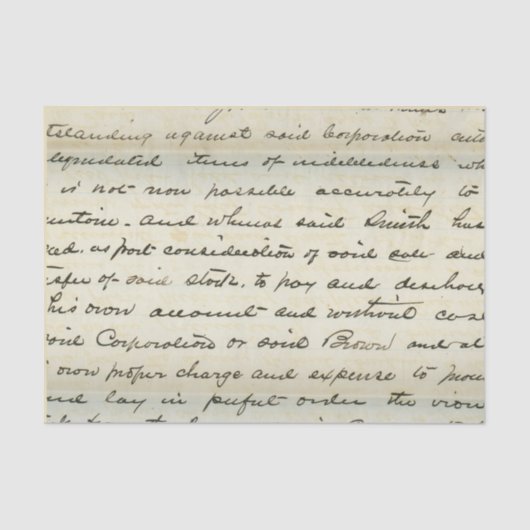 tstanding against said Corporation and
liquidated items of indebtedness wh
is not now possible accurately to
and whereas said Smith has
ed, as part consideration of said sale and
sfer of said stock, to pay and discharge
his own account and without cost
said Corporation or said Brown and at
own proper charge and expense to
nd lay in order the iron